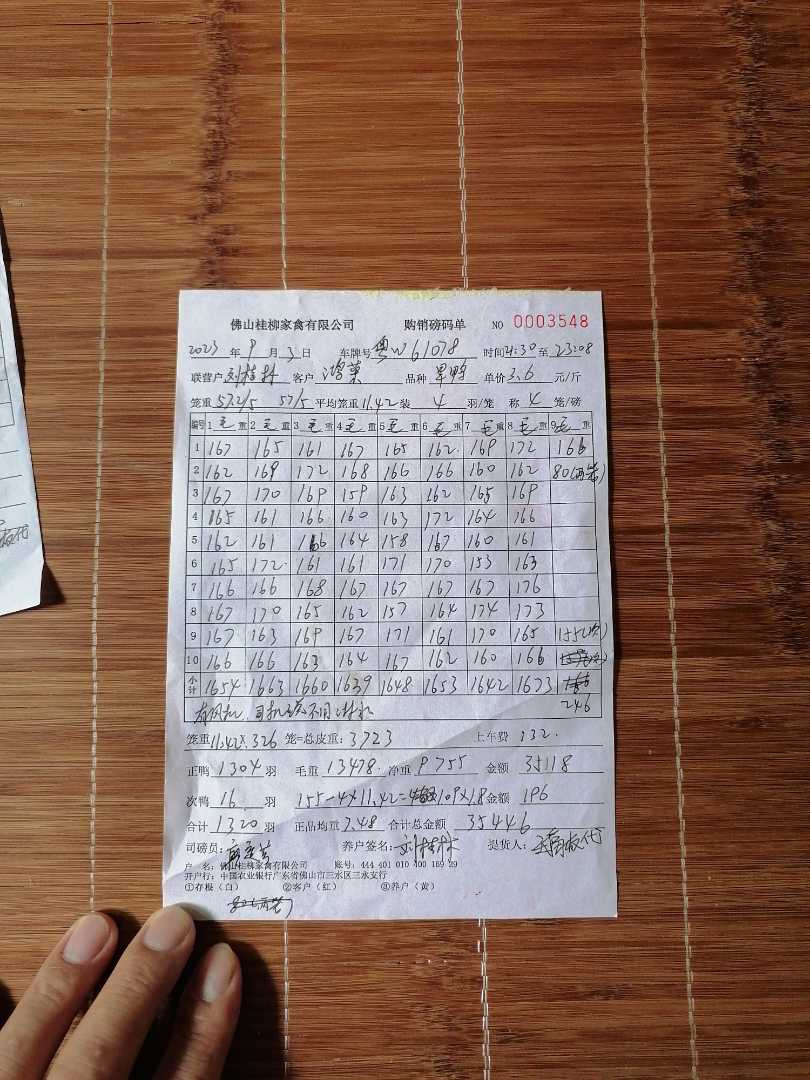 佛山桂柳家禽有限公司 购销磅码单 NO 0003548
2023 年 9 月 3 日 车牌号 粤W61078 时间 21:30 至 23:08
联营户 刘桂林 客户 鸿 品种 单价 3.6 元/斤
笼重 57.2/5 57/5 平均笼重 11.42 装 4 羽/笼 称 4 笼/磅
编号 1 毛 重 2 毛 重 3 毛 重 4 毛 重 5 毛 重 6 毛 重 7 毛 重 8 毛 重 9 毛 重
1 167 165 161 167 165 162 169 172 166
2 162 169 172 168 166 166 160 162 80(两笼)
3 167 170 169 159 163 162 165 169
4 165 161 166 160 163 172 164 166
5 162 161 166 164 158 167 160 161
6 165 172 161 161 171 170 153 163
7 166 166 168 167 167 167 167 176
8 167 170 165 162 157 164 174 173
9 167 163 169 167 171 161 170 165 155(次)
10 166 166 163 164 167 162 160 166
小计 1654 1663 1660 1639 1648 1653 1642 1673 246
有风机,司机 不用
笼重 11.42 × 326 笼=总皮重: 3723 上车费 132
正鸭 1304 羽 毛重 13478 净重 9755 金额 35118
次鸭 16 羽 155-4×11.42= 109×1.8 金额 196
合计 1320 羽 正品均重 7.48 合计总金额 35446
司磅员: 养户签名: 刘桂林 提货人: 代
户 名: 佛山桂柳家禽有限公司 账号: 444 401 010 400 159 29
开户行: 中国农业银行广东省佛山市三水区三水支行
①存根(白) ②客户(红) ③养户(黄)